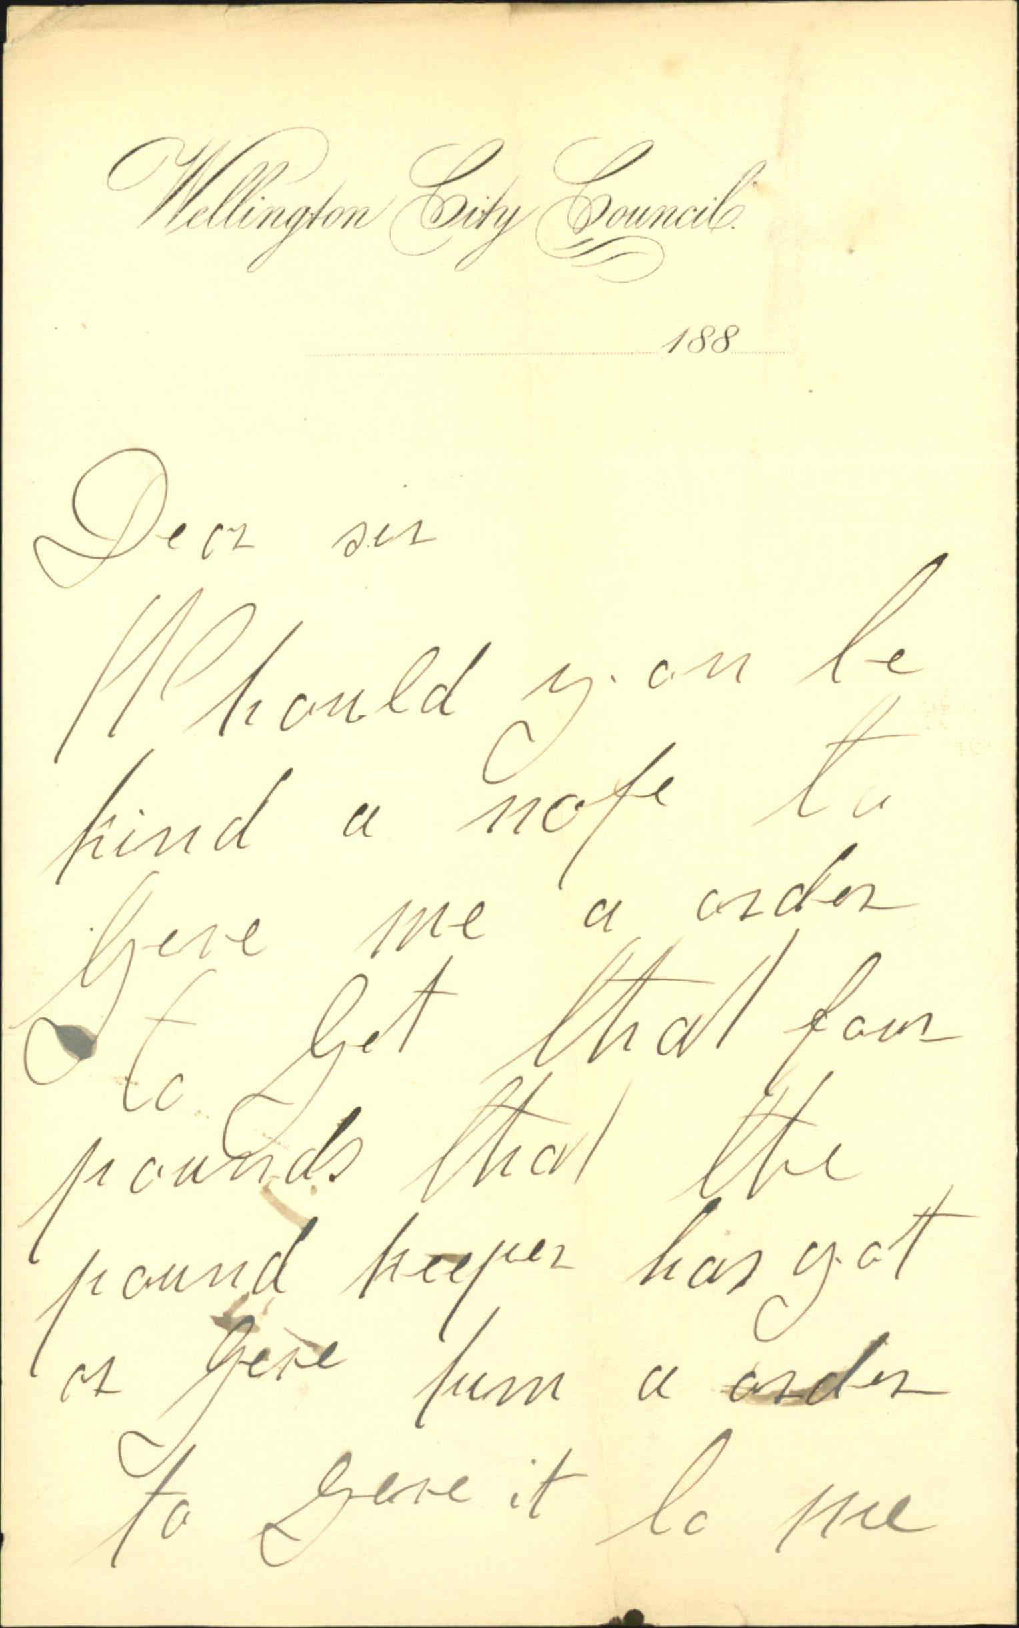 Wellington City Council.
188
Dear sir
Whould you be
kind a nofe to
Geve me a order
to Get that four
pounds that the
pound keeper has got
or Geve him a order
to Geve it to me